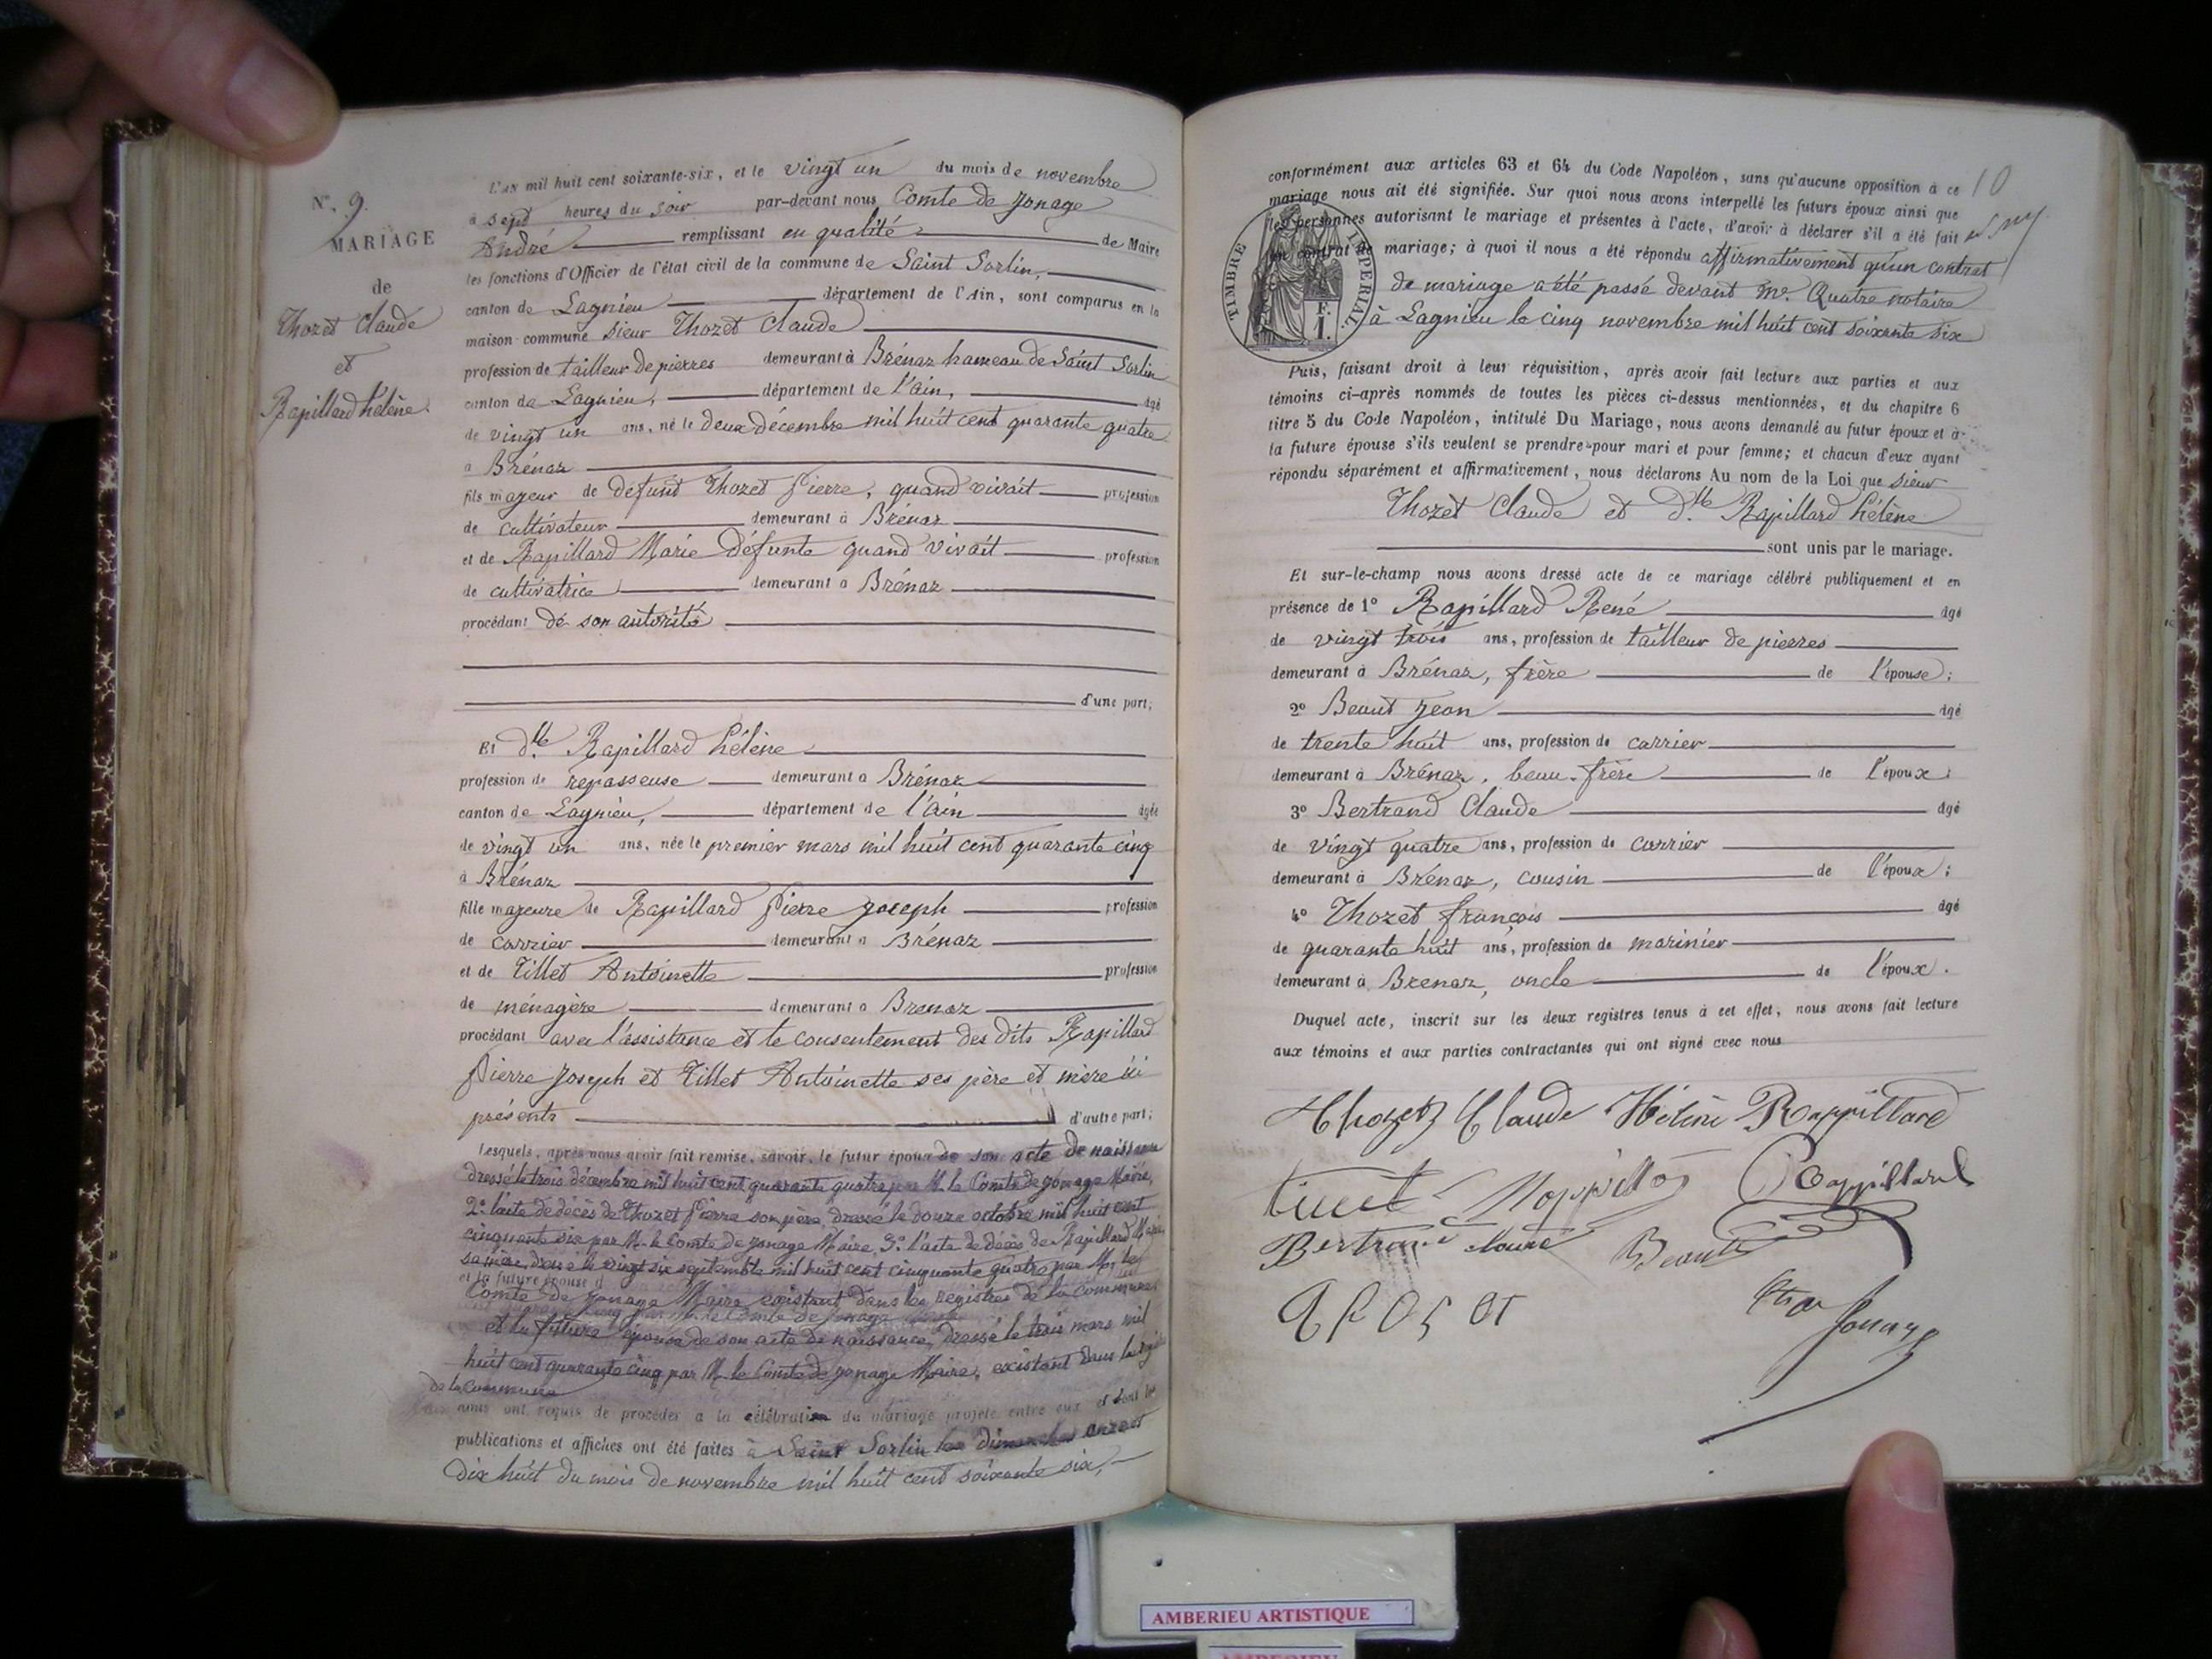 N°. 9.
MARIAGE
de
Thozet Claude
et
Rapillard hélène.
L'AN mil huit cent soixante-six, et le vingt un du mois de novembre
à sept heures du soir par-devant nous Comte de Jonage
André remplissant en qualité de Maire
les fonctions d'Officier de l'état civil de la commune de Saint Sorlin,
canton de Lagnieu département de l'Ain, sont comparus en la
maison commune sieur Thozet Claude
profession de tailleur de pierres demeurant à Brénaz hameau de Saint Sorlin
canton de Lagnieu, département de l'ain, âgé
de vingt un ans, né le deux décembre mil huit cent quarante quatre
à Brénaz
fils majeur de défunt Thozet Pierre, quand vivait profession
de cultivateur demeurant à Brénaz
et de Rapillard Marie défunte quand vivait profession
de cultivatrice demeurant à Brénaz
procédant de son autorité
d'une part;
Et dlle Rapillard hélène
profession de repasseuse demeurant à Brénaz
canton de Lagnieu, département de l'ain âgée
de vingt un ans, née le premier mars mil huit cent quarante cinq
à Brénaz
fille majeure de Rapillard Pierre Joseph profession
de carrier demeurant à Brénaz
et de Tillet Antoinette profession
de ménagère demeurant à Brenaz
procédant avec l'assistance et le consentement des dits Rapillard
Pierre Joseph et Tillet Antoinette ses père et mère ici
présents d'autre part;
Lesquels, après nous avoir fait remise, savoir, le futur époux de son acte de naissance
dressé le trois décembre mil huit cent quarante quatre par M. le Comte de Jonage Maire,
2° l'acte de décès de Thozet Pierre son père, dressé le douze octobre mil huit cent
cinquante six par M. le Comte de Jonage Maire, 3° l'acte de décès de Rapillard Marie
sa mère, dressé le vingt six septembre mil huit cent cinquante quatre par M. le
et la future épouse d
Comte de Jonage Maire existant dans les registres de la commune
et la future épouse de son acte de naissance, dressé le trois mars mil
huit cent quarante cinq par M. le Comte de Jonage Maire, existant dans les
de la commune
nous ont requis de procéder à la célébration du mariage projeté entre eux et dont les
publications et affiches ont été faites à Saint Sorlin les dimanches onze et
dix huit du mois de novembre mil huit cent soixante six,
10
conformément aux articles 63 et 64 du Code Napoléon, sans qu'aucune opposition à ce
mariage nous ait été signifiée. Sur quoi nous avons interpellé les futurs époux ainsi que
les personnes autorisant le mariage et présentes à l'acte, d'avoir à déclarer s'il a été fait
un contrat de mariage; à quoi il nous a été répondu affirmativement qu'un contrat
de mariage a été passé devant Me. Quatre notaire
à Lagnieu le cinq novembre mil huit cent soixante six
TIMBRE IMPERIAL.
F.
I.
Puis, faisant droit à leur réquisition, après avoir fait lecture aux parties et aux
témoins ci-après nommés de toutes les pièces ci-dessus mentionnées, et du chapitre 6
titre 5 du Code Napoléon, intitulé Du Mariage, nous avons demandé au futur époux et à
la future épouse s'ils veulent se prendre pour mari et pour femme; et chacun d'eux ayant
répondu séparément et affirmativement, nous déclarons Au nom de la Loi que sieur
Thozet Claude et dlle Rapillard hélène
sont unis par le mariage.
Et sur-le-champ nous avons dressé acte de ce mariage célébré publiquement et en
présence de 1° Rapillard René âgé
de vingt trois ans, profession de tailleur de pierres
demeurant à Brénaz, frère de l'épouse;
2° Beaut Jean âgé
de trente huit ans, profession de carrier
demeurant à Brénaz, beau-frère de l'époux;
3° Bertrand Claude âgé
de vingt quatre ans, profession de carrier
demeurant à Brénaz, cousin de l'époux;
4° Thozet françois âgé
de quarante huit ans, profession de marinier
demeurant à Brenaz, oncle de l'époux.
Duquel acte, inscrit sur les deux registres tenus à cet effet, nous avons fait lecture
aux témoins et aux parties contractantes qui ont signé avec nous
Thozet Claude Hélène Rappillard
Rappillard
Bertrand Claude Beaut
Jonage
AMBERIEU ARTISTIQUE
AMBERIEU